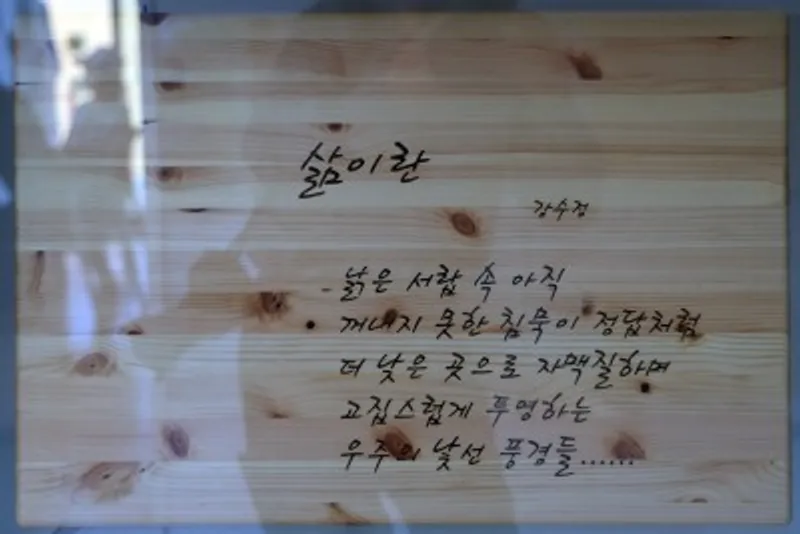 삶이란
강수정
낡은 서랍 속 아직
꺼내지 못한 침묵이 정답처럼
더 낮은 곳으로 자맥질하며
고집스럽게 투영하는
우주의 낯선 풍경들......